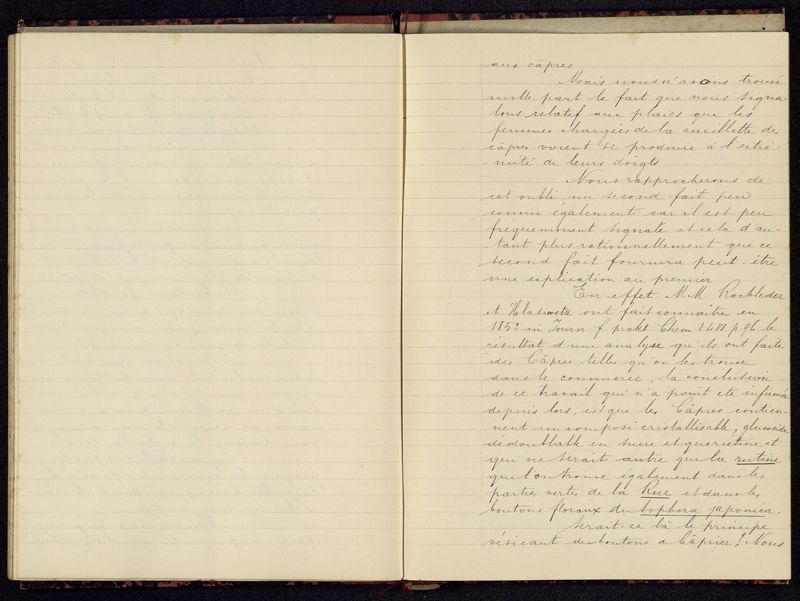 aux câpres
Mais nous n'avons trouvé
nulle part le fait que nous signa-
lons relatif aux plaies que les
femmes chargées de la cueillette des
câpres voient se produire à l'extré-
-mité de leurs doigts
Nous rapprocherons de
cet oubli un second fait peu
connu également car il est peu
fréquemment signalé et cela d'au-
-tant plus rationnellement que ce
second fait fournira peut-être
une explication au premier
En effet MM Rochleder
et Hlasiwetz ont fait connaître en
185 in Journ f. prakt Chem t p. 96 le
résultat d'une analyse qu'ils ont faite
des Câpres telles qu'on les trouve
dans le commerce, la conclusion
de ce travail qui n'a point été infirmée
depuis lors, est que les Câpres contien-
nent un composé cristallisable, glucoside
dédoublable en sucre et quercétine et
qui ne serait autre que la rutine
que l'on trouve également dans les
parties vertes de la Rue et dans les
boutons floraux du Sophora japonica.
Serait-ce là le principe
vésicant des boutons de Câprier? Nous